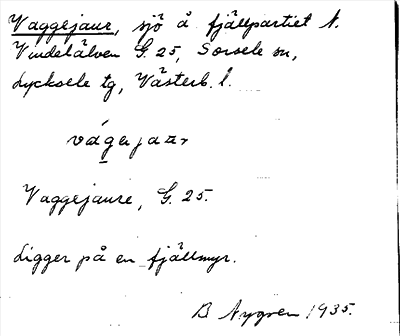 Vaggejaur, sjö å fjällpartiet N.
Vindelälven G. 25, Sorsele sn,
Lycksele tg, Västerb. l.
vágejaur
Vaggejaure, G. 25.
Ligger på en fjällmyr.
B Nygren 1935.